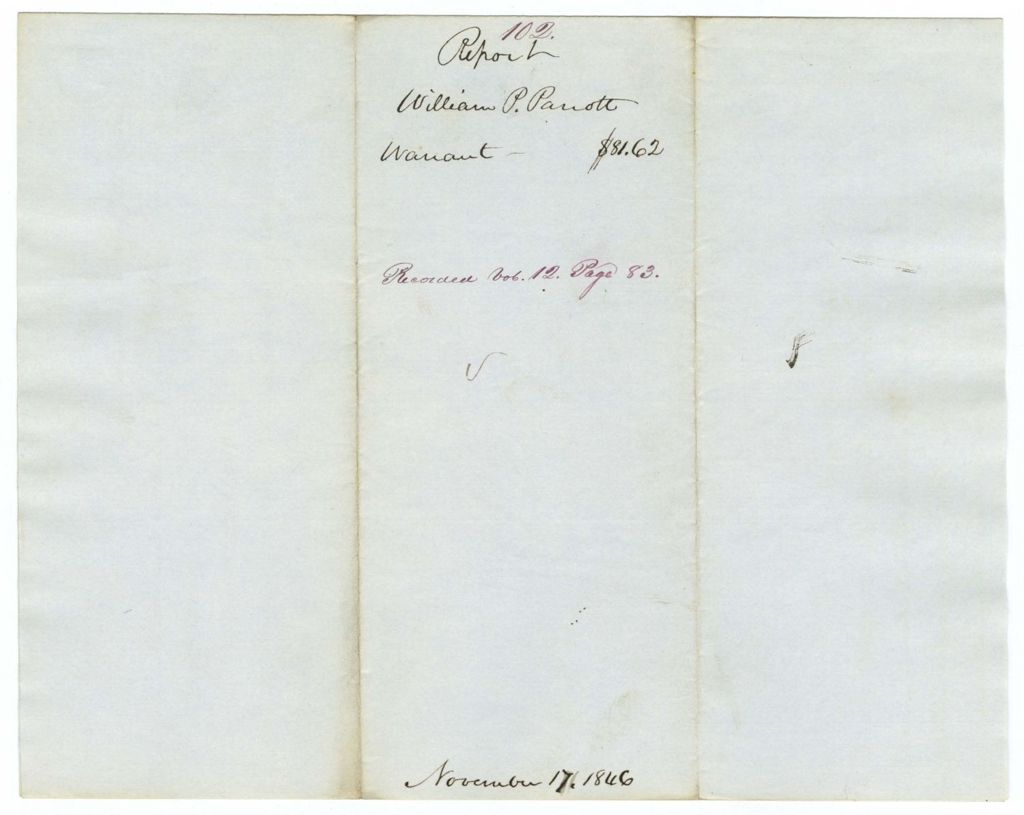 102.
Report
William P. Parrott
Warrant – $81.62
Recorded Vol. 12. Page 83.
November 17. 1846